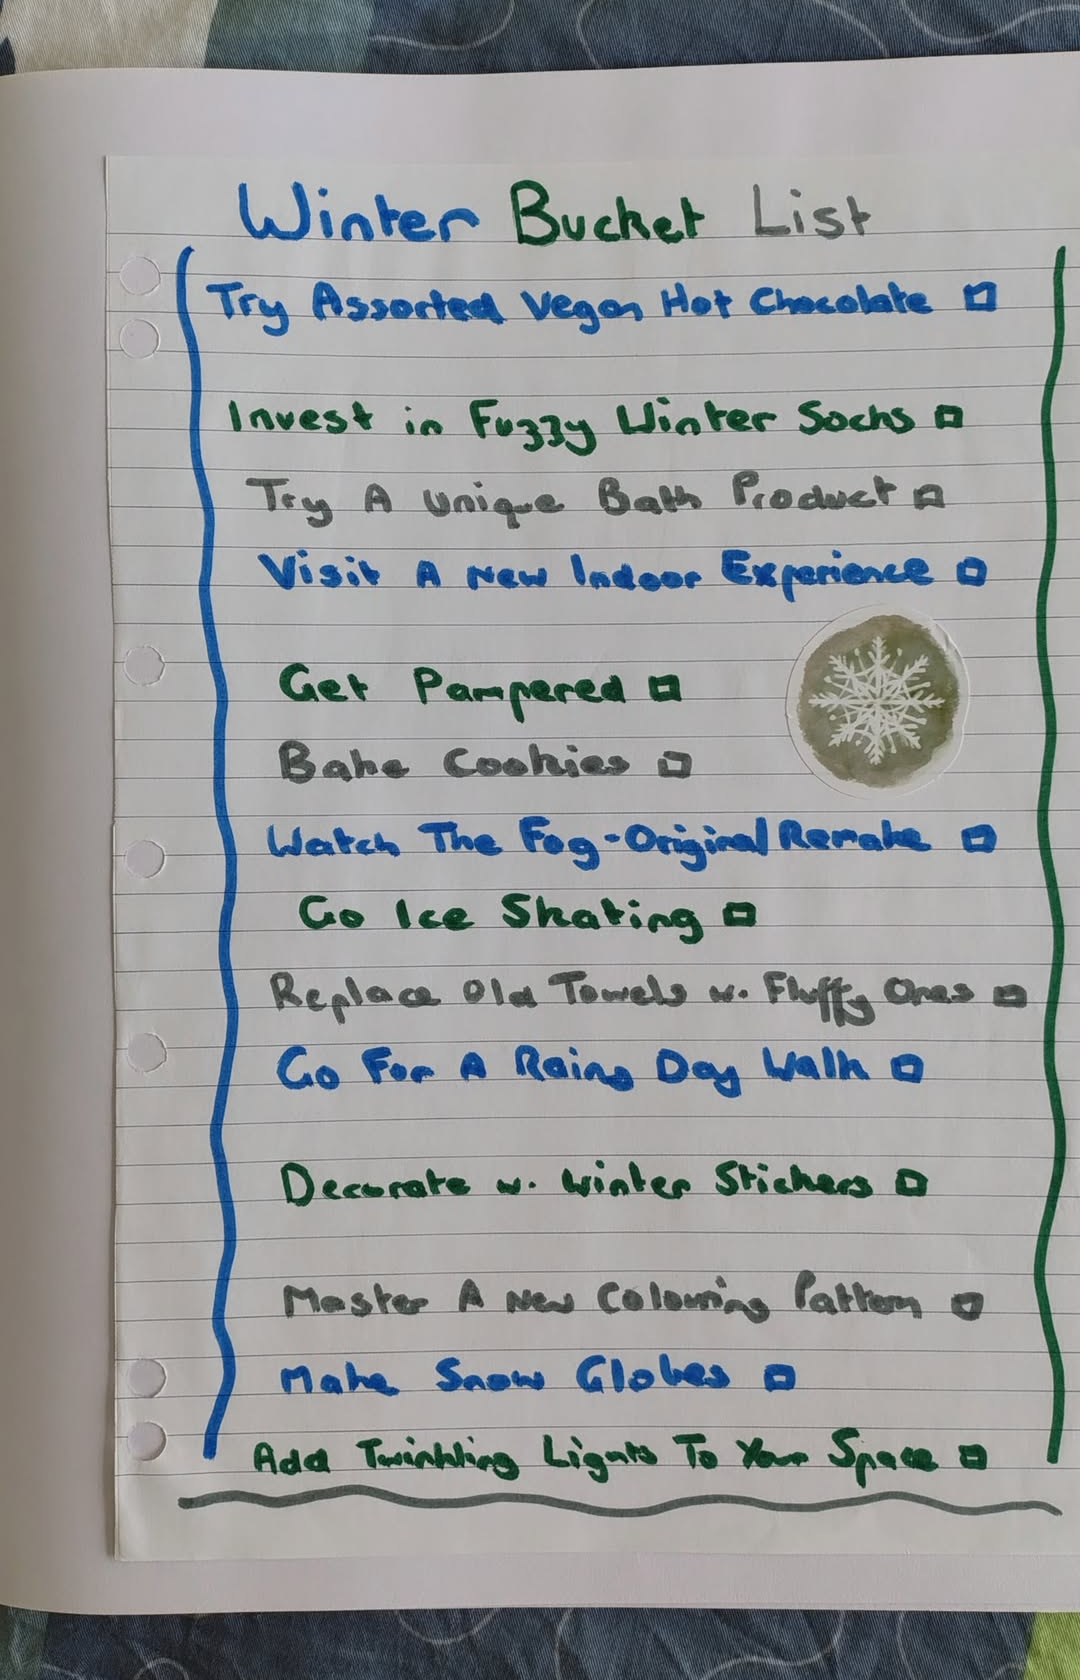 Winter Bucket List
Try Assorted Vegan Hot Chocolate
Invest in Fuzzy Winter Socks
Try A Unique Bath Product
Visit A New Indoor Experience
Get Pampered
Bake Cookies
Watch The Fog-Original Remake
Go Ice Skating
Replace Old Towels w. Fluffy Ones
Go For A Rainy Day Walk
Decorate w. Winter Stickers
Master A New Colouring Pattern
Make Snow Globes
Add Twinkling Lights To Your Space